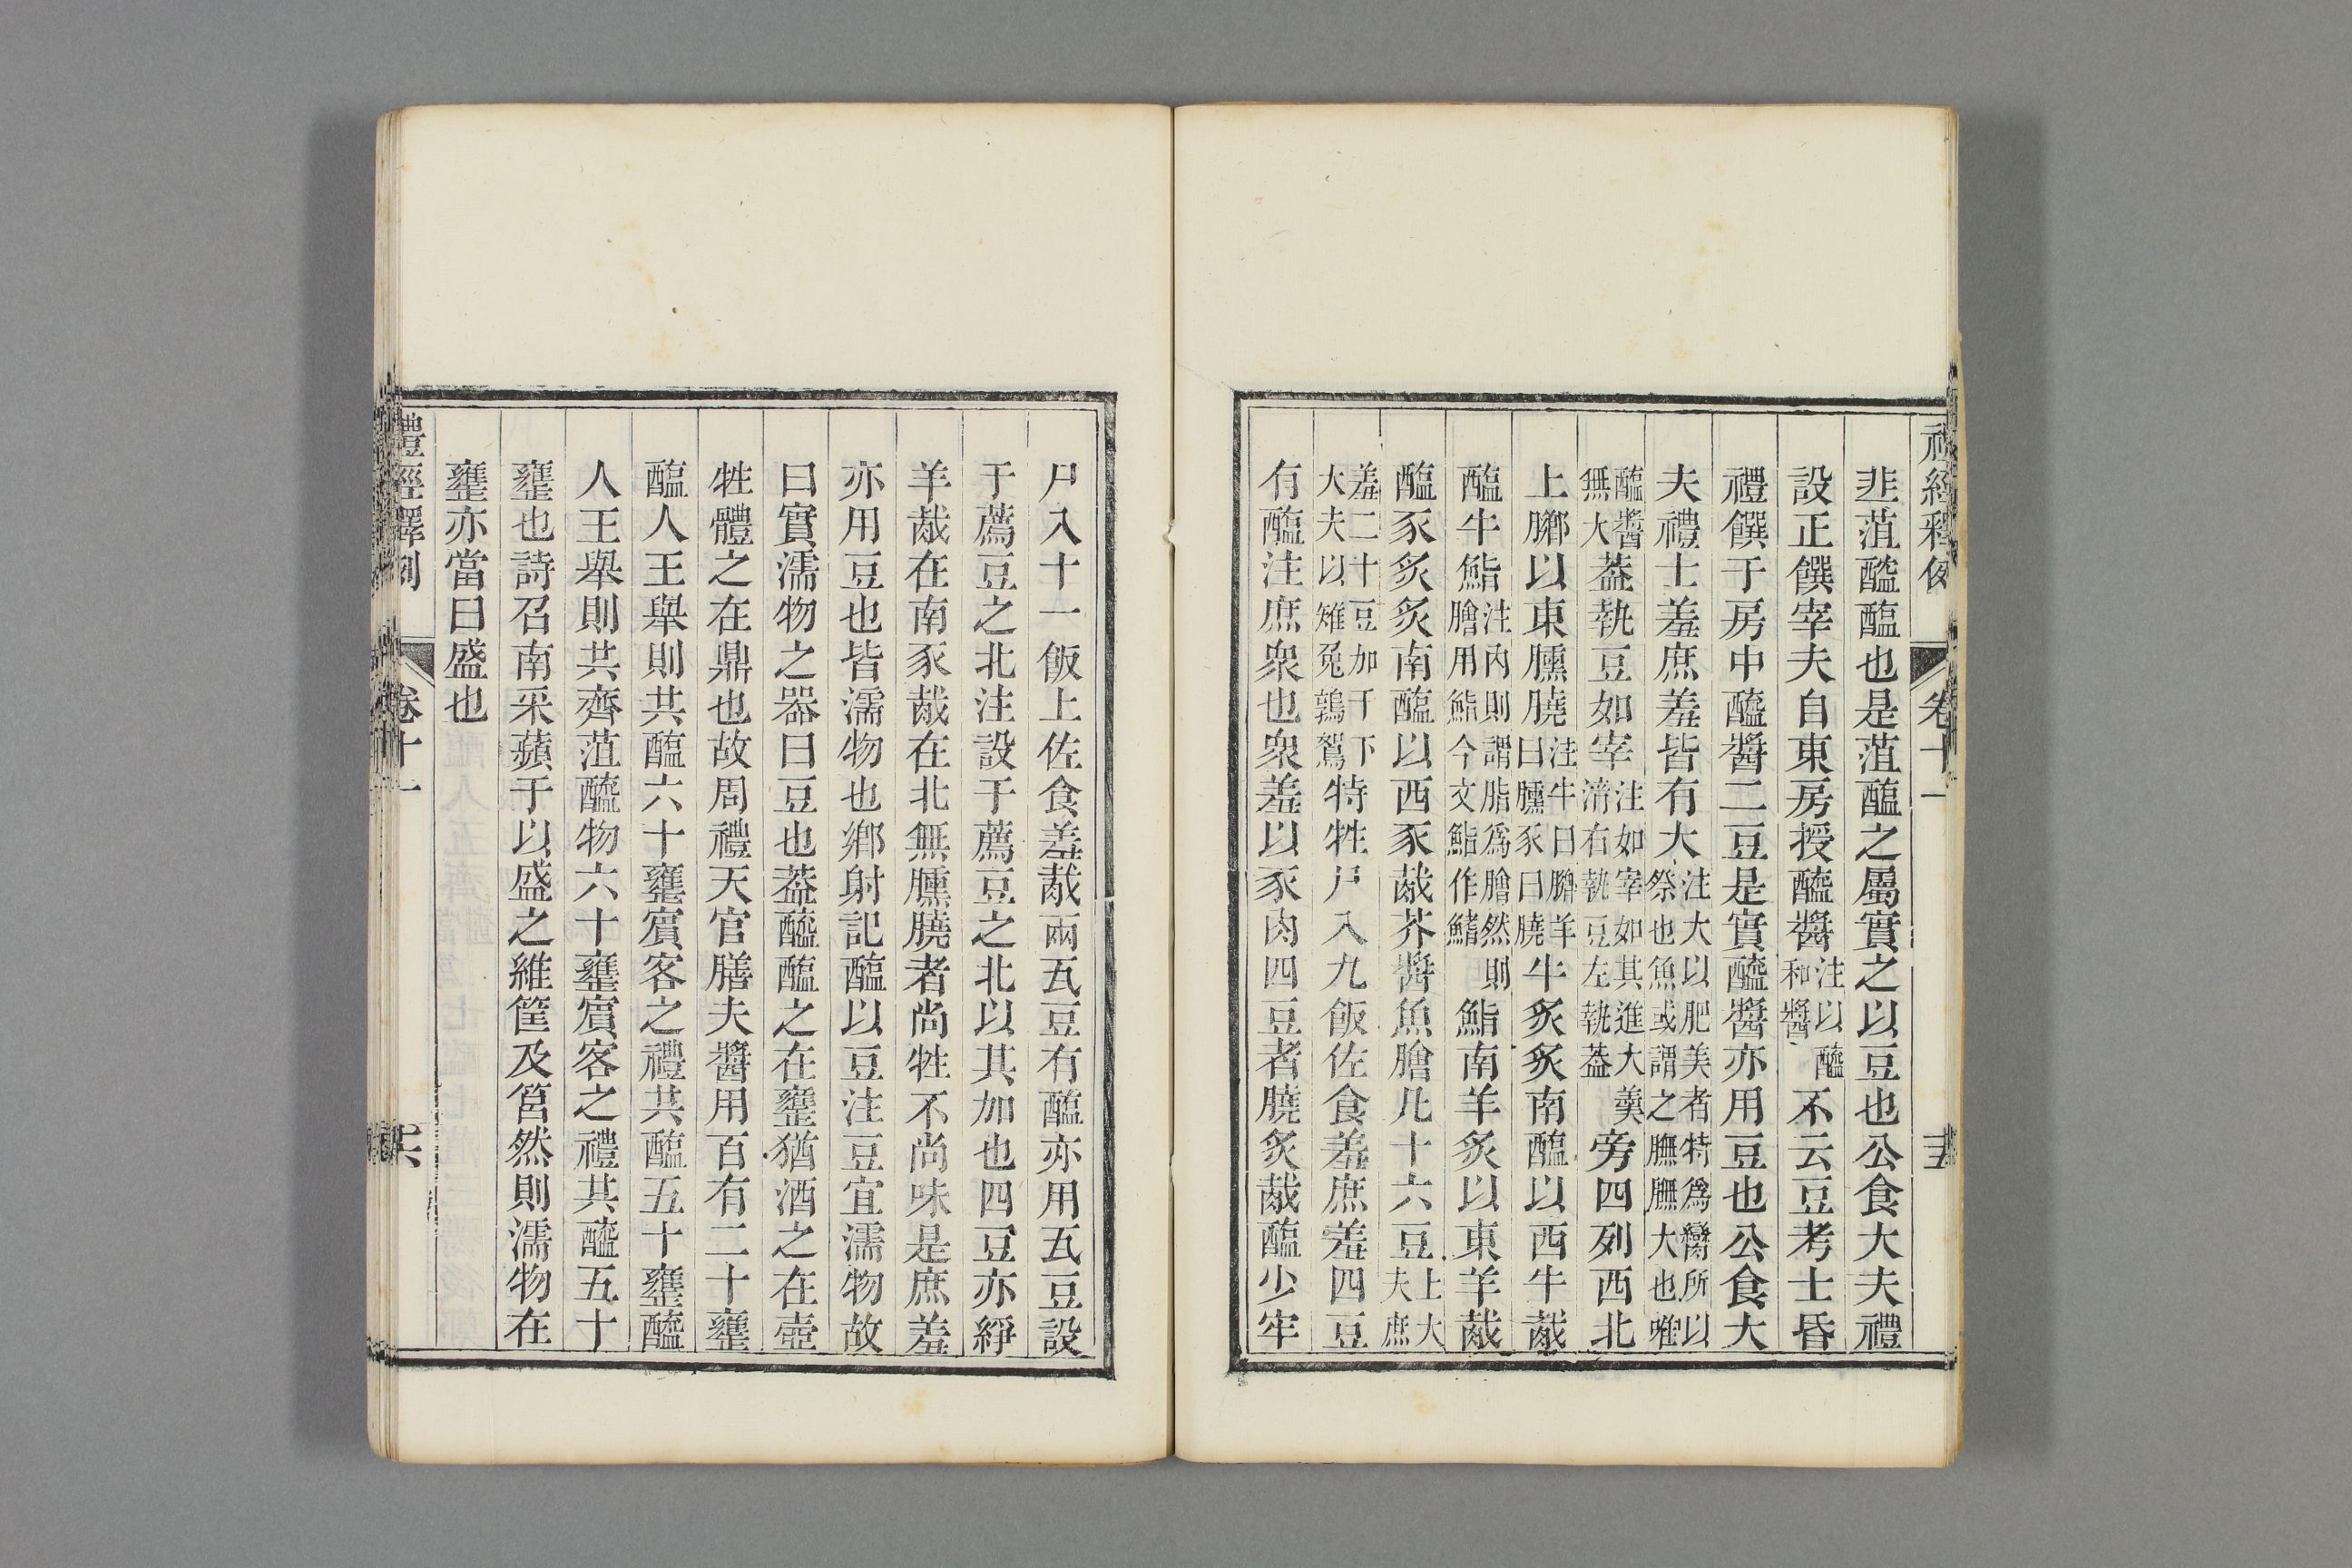 禮經釋例 卷十一 十五
韭菹醓醢也是菹醢之屬實之以豆也公食大夫禮
設正饌宰夫自東房授醯醬注以醯和醬不云豆考士昏
禮饌于房中醯醬二豆是實醯醬亦用豆也公食大
夫禮士羞庶羞皆有大注大以肥美者特爲臠所以祭也魚或謂之膴膴大也唯
醢醬無大蓋執豆如宰注如宰如其進大羹湆右執豆左執蓋旁四列西北
上膷以東臐膮注牛曰膷羊曰臐豕曰膮牛炙炙南醢以西牛胾
醢牛鮨注内則謂鮨爲膾然則膾用鮨今文鮨作鰭鮨南羊炙以東羊胾
醢豕炙炙南醢以西豕胾芥醬魚膾凡十六豆上大夫庶
羞二十豆加于下大夫以雉兔鶉鴽特牲尸入九飯佐食羞庶羞四豆
有醢注庶衆也衆羞以豕肉四豆者膮炙胾醢少牢
尸入十一飯上佐食羞胾兩瓦豆有醢亦用瓦豆設
于薦豆之北注設于薦豆之北以其加也四豆亦綪
羊胾在南豕胾在北無臐膮者尚牲不尚味是庶羞
亦用豆也皆濡物也鄉射記醢以豆注豆宜濡物故
曰實濡物之器曰豆也葢醯醢之在罋猶酒之在壺
牲體之在鼎也故周禮天官膳夫醬用百有二十罋
醢人王舉則共醢六十罋賓客之禮共醢五十罋醯
人王舉則共齊菹醯物六十罋賓客之禮共醯五十
罋也詩召南采蘋于以盛之維筐及筥然則濡物在
罋亦當曰盛也
禮經釋例 卷十一 十六